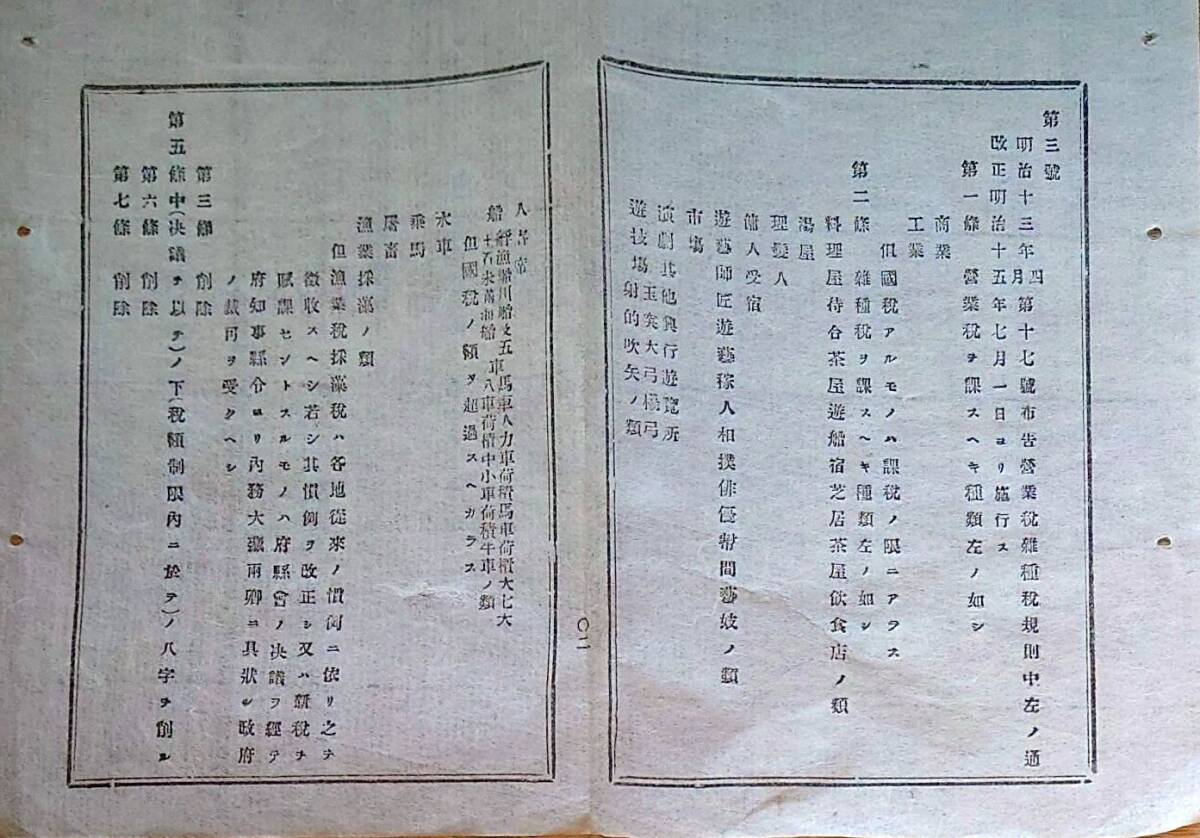 第三號
明治十三年四月第十七號布告營業税雜種税規則中左ノ通
改正明治十五年七月一日ヨリ施行ス
第一條 營業税ヲ課スヘキ種類左ノ如シ
商業
工業
但國税アルモノハ課税ノ限ニアラス
第二條 雜種税ヲ課スヘキ種類左ノ如シ
料理屋待合茶屋遊船宿芝居茶屋飲食店ノ類
湯屋
理髪人
傭人受宿
遊藝師匠遊藝稼人相撲俳優幇間藝妓ノ類
市場
演劇其他興行遊覽所
遊技場玉突大弓楊弓射的吹矢ノ類
〇二
人寄席
船
五馬車人力車荷積馬車荷積大七大
八車荷積中小車荷積牛車ノ類
但國税ノ額ヲ超過スヘカラス
水車
乘馬
屠畜
漁業採藻ノ類
但漁業税採藻税ハ各地從來ノ慣例ニ依リ之ヲ
徴收スヘシ若シ其慣例ヲ改正シ又ハ新税ヲ
賦課セントスルモノハ府縣會ノ决議ヲ經テ
府知事縣令ヨリ內務大藏兩卿ニ具狀シ政府
ノ裁可ヲ受クヘシ
第三條 削除
第五條中(决議ヲ以テ)ノ下(税額制限內ニ於テ)ノ八字ヲ削ル
第六條 削除
第七條 削除